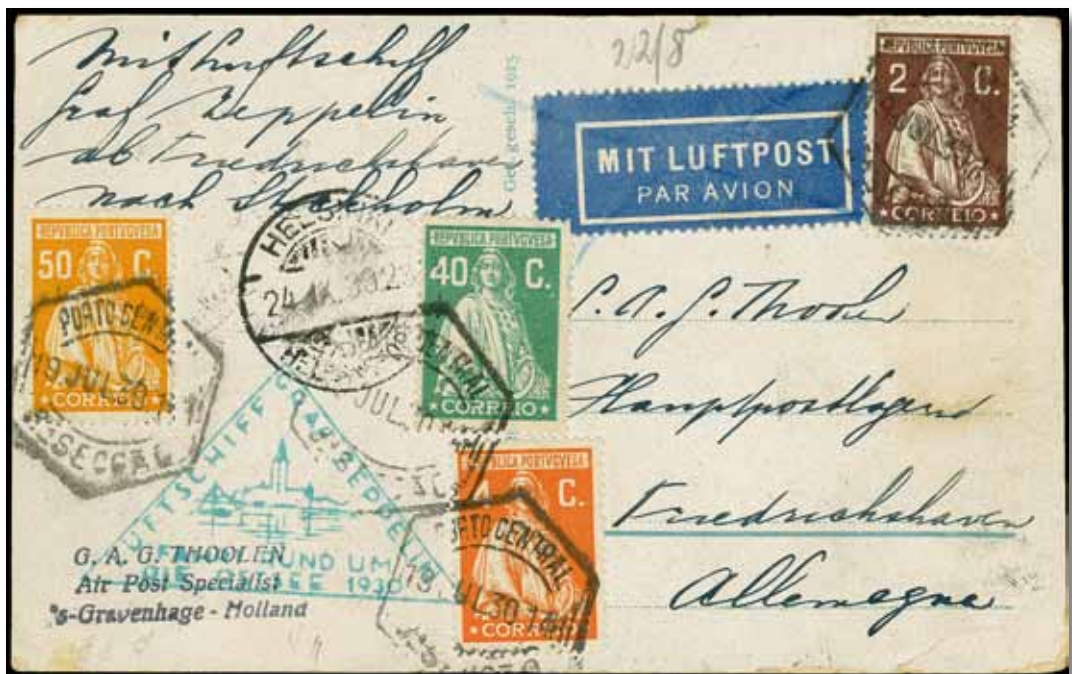 22/8
Mit Luftschiff
Graf Zeppelin
ab Friedrichshafen
nach Stockholm
Ges. gesch. 1615
MIT LUFTPOST
PAR AVION
REPVBLICA PORTVGVESA
2 C.
CORREIO
REPVBLICA PORTVGVESA
50 C.
CORREIO
PORTO CENTRAL
19 JUL 30
SECÇÃO
24. IX. 30
REPVBLICA PORTVGVESA
40 C.
CORREIO
CENTRAL
JUL
REPVBLICA PORTVGVESA
C.
CORREIO
PORTO CENTRAL
19 JUL 30
LUFTSCHIFF GRAF ZEPPELIN
RUND UM
DIE OSTSEE 1930
G. A. G. Thoolen
Hauptpostlagernd
Friedrichshafen
Allemagne
G. A. G. THOOLEN
Air Post Specialist
's-Gravenhage - Holland